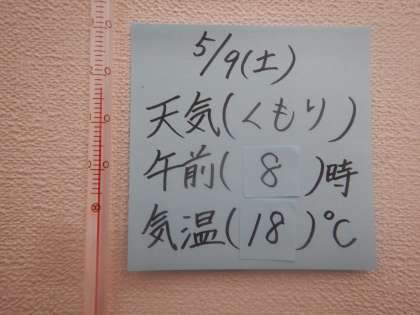 5/9(土)
天気(くもり)
午前(8)時
気温(18)℃